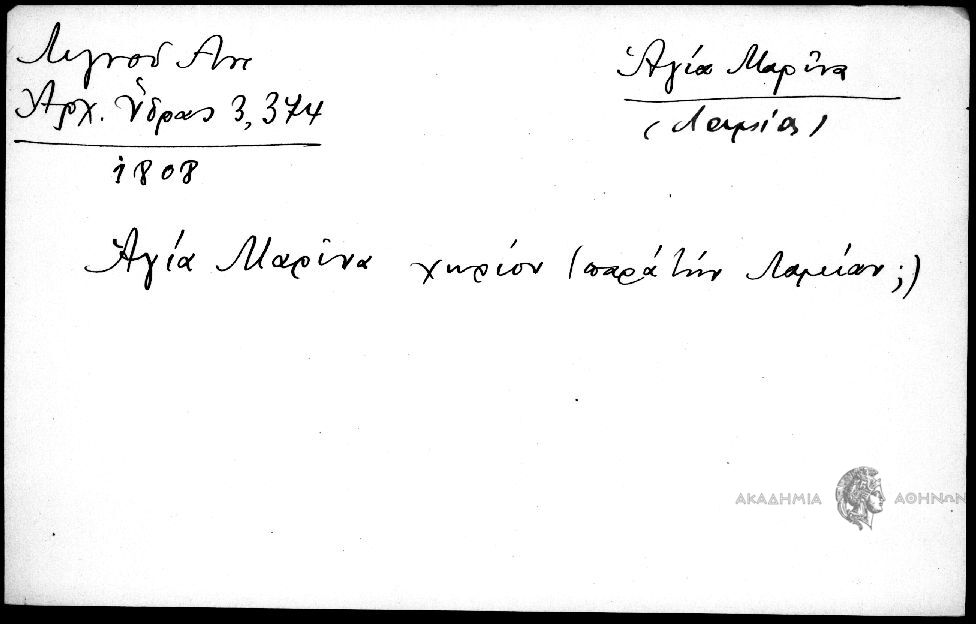 Λιγνοῦ Αντ
Ἀρχ. Ὕδρας 3, 374
1808
Ἁγία Μαρῖνα
(Λαμίας)
Ἁγία Μαρῖνα χωρίον (παρά τήν Λαμίαν;)
ΑΚΑΔΗΜΙΑ ΑΘΗΝΩΝ